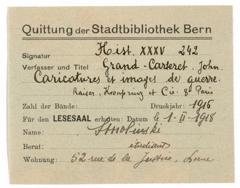 Quittung der Stadtbibliothek Bern
Signatur Hist. XXXV 242
Verfasser und Titel Grand-Carteret, John.
Caricatures et images de guerre.
Paris
Zahl der Bände: Druckjahr: 1916
Für den LESESAAL erhalten: Datum 1-II-1918
Name:
Beruf: étudiant
Wohnung: 52 rue de la Justice, Berne